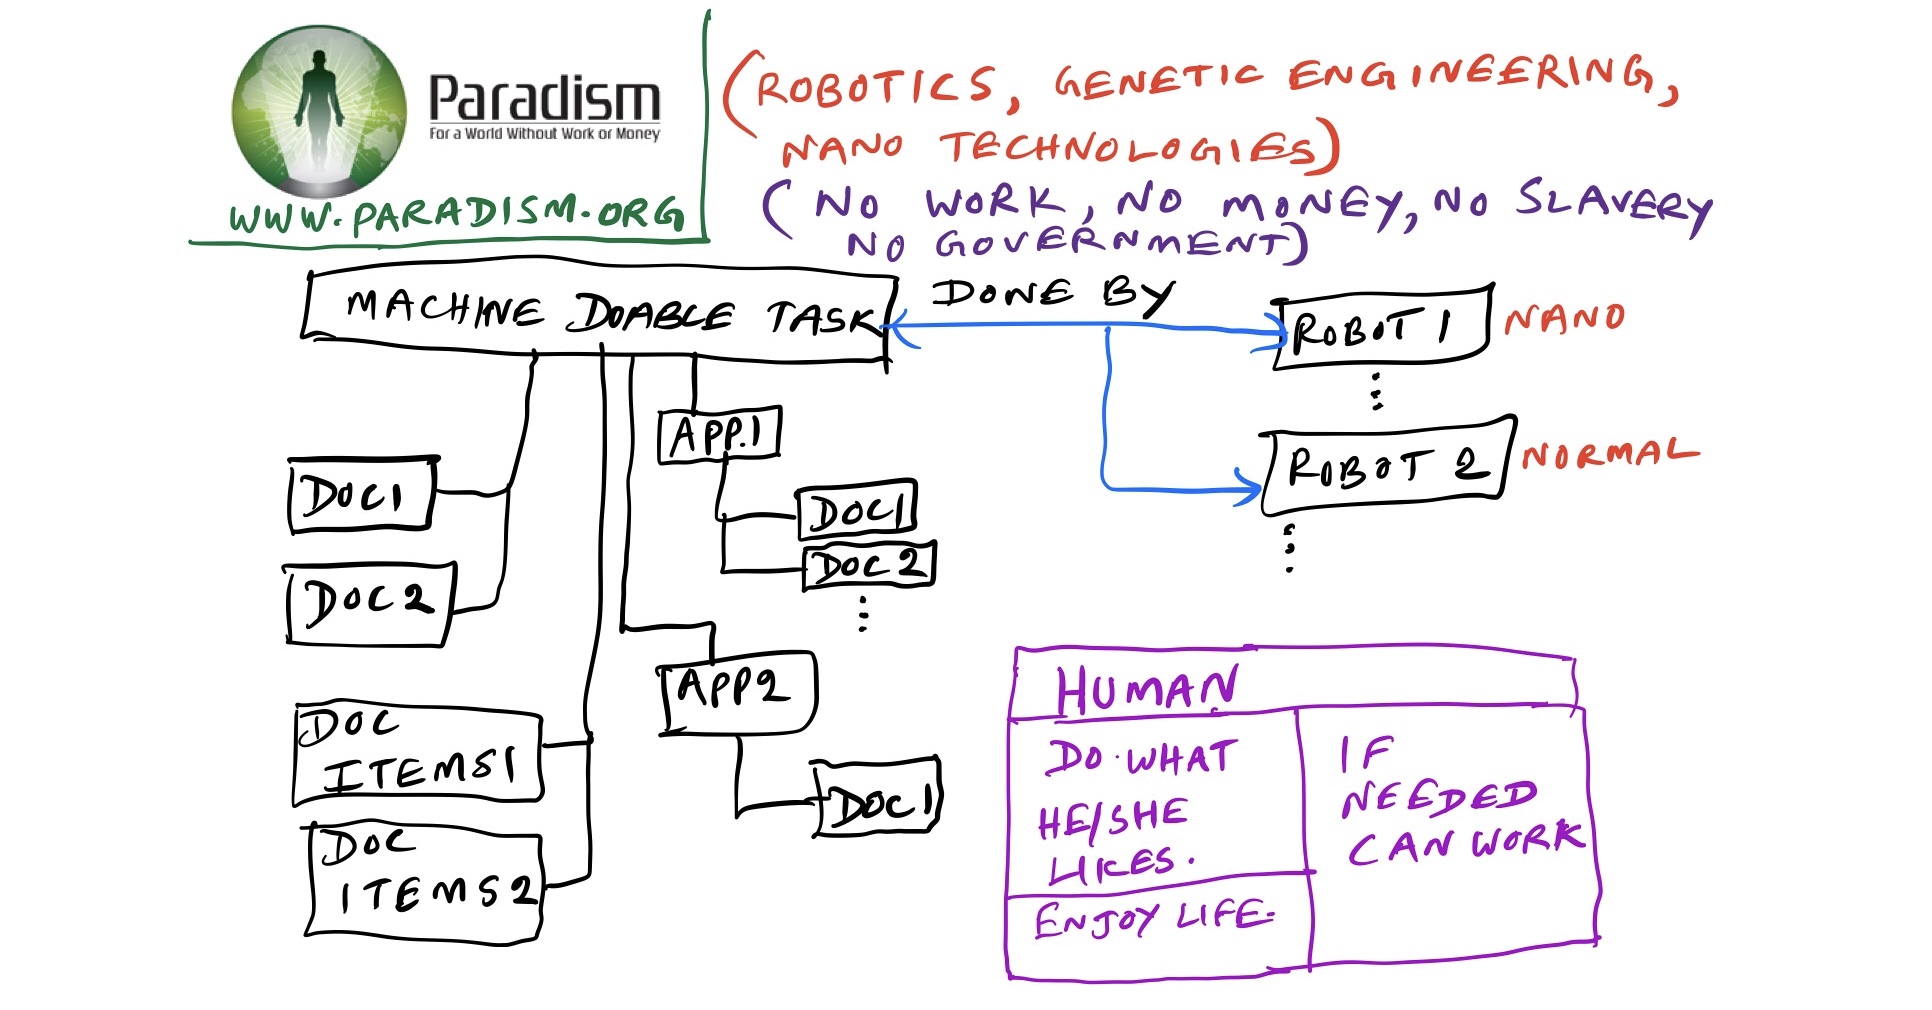 Paradism
For a World Without Work or Money
WWW.PARADISM.ORG
(ROBOTICS, GENETIC ENGINEERING,
NANO TECHNOLOGIES)
(NO WORK, NO MONEY, NO SLAVERY
NO GOVERNMENT)
MACHINE DOABLE TASK
DONE BY
ROBOT 1
NANO
ROBOT 2
NORMAL
DOC1
DOC2
DOC
ITEMS1
DOC
ITEMS2
APP.1
DOC1
DOC2
APP2
DOC1
HUMAN
DO.WHAT
HE/SHE
LIKES.
ENJOY LIFE.
IF
NEEDED
CAN WORK